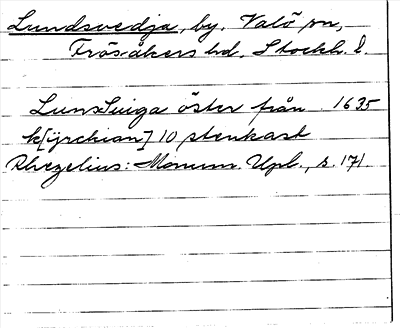 Lundsvedja, by, Valö sn,
Frösåkers hd. Stockh. l.
LunsSuiga öster från 1635
k[ÿrchian] 10 stenkast
Rhezelius: Monum. Upl., s. 171.